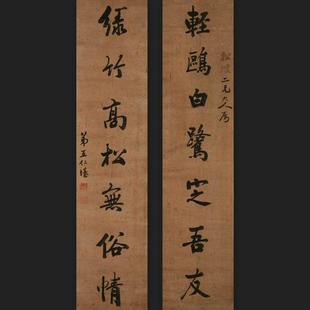 二兄大人屬
輕鷗白鷺定吾友
綠竹高松無俗情
弟王仁堪